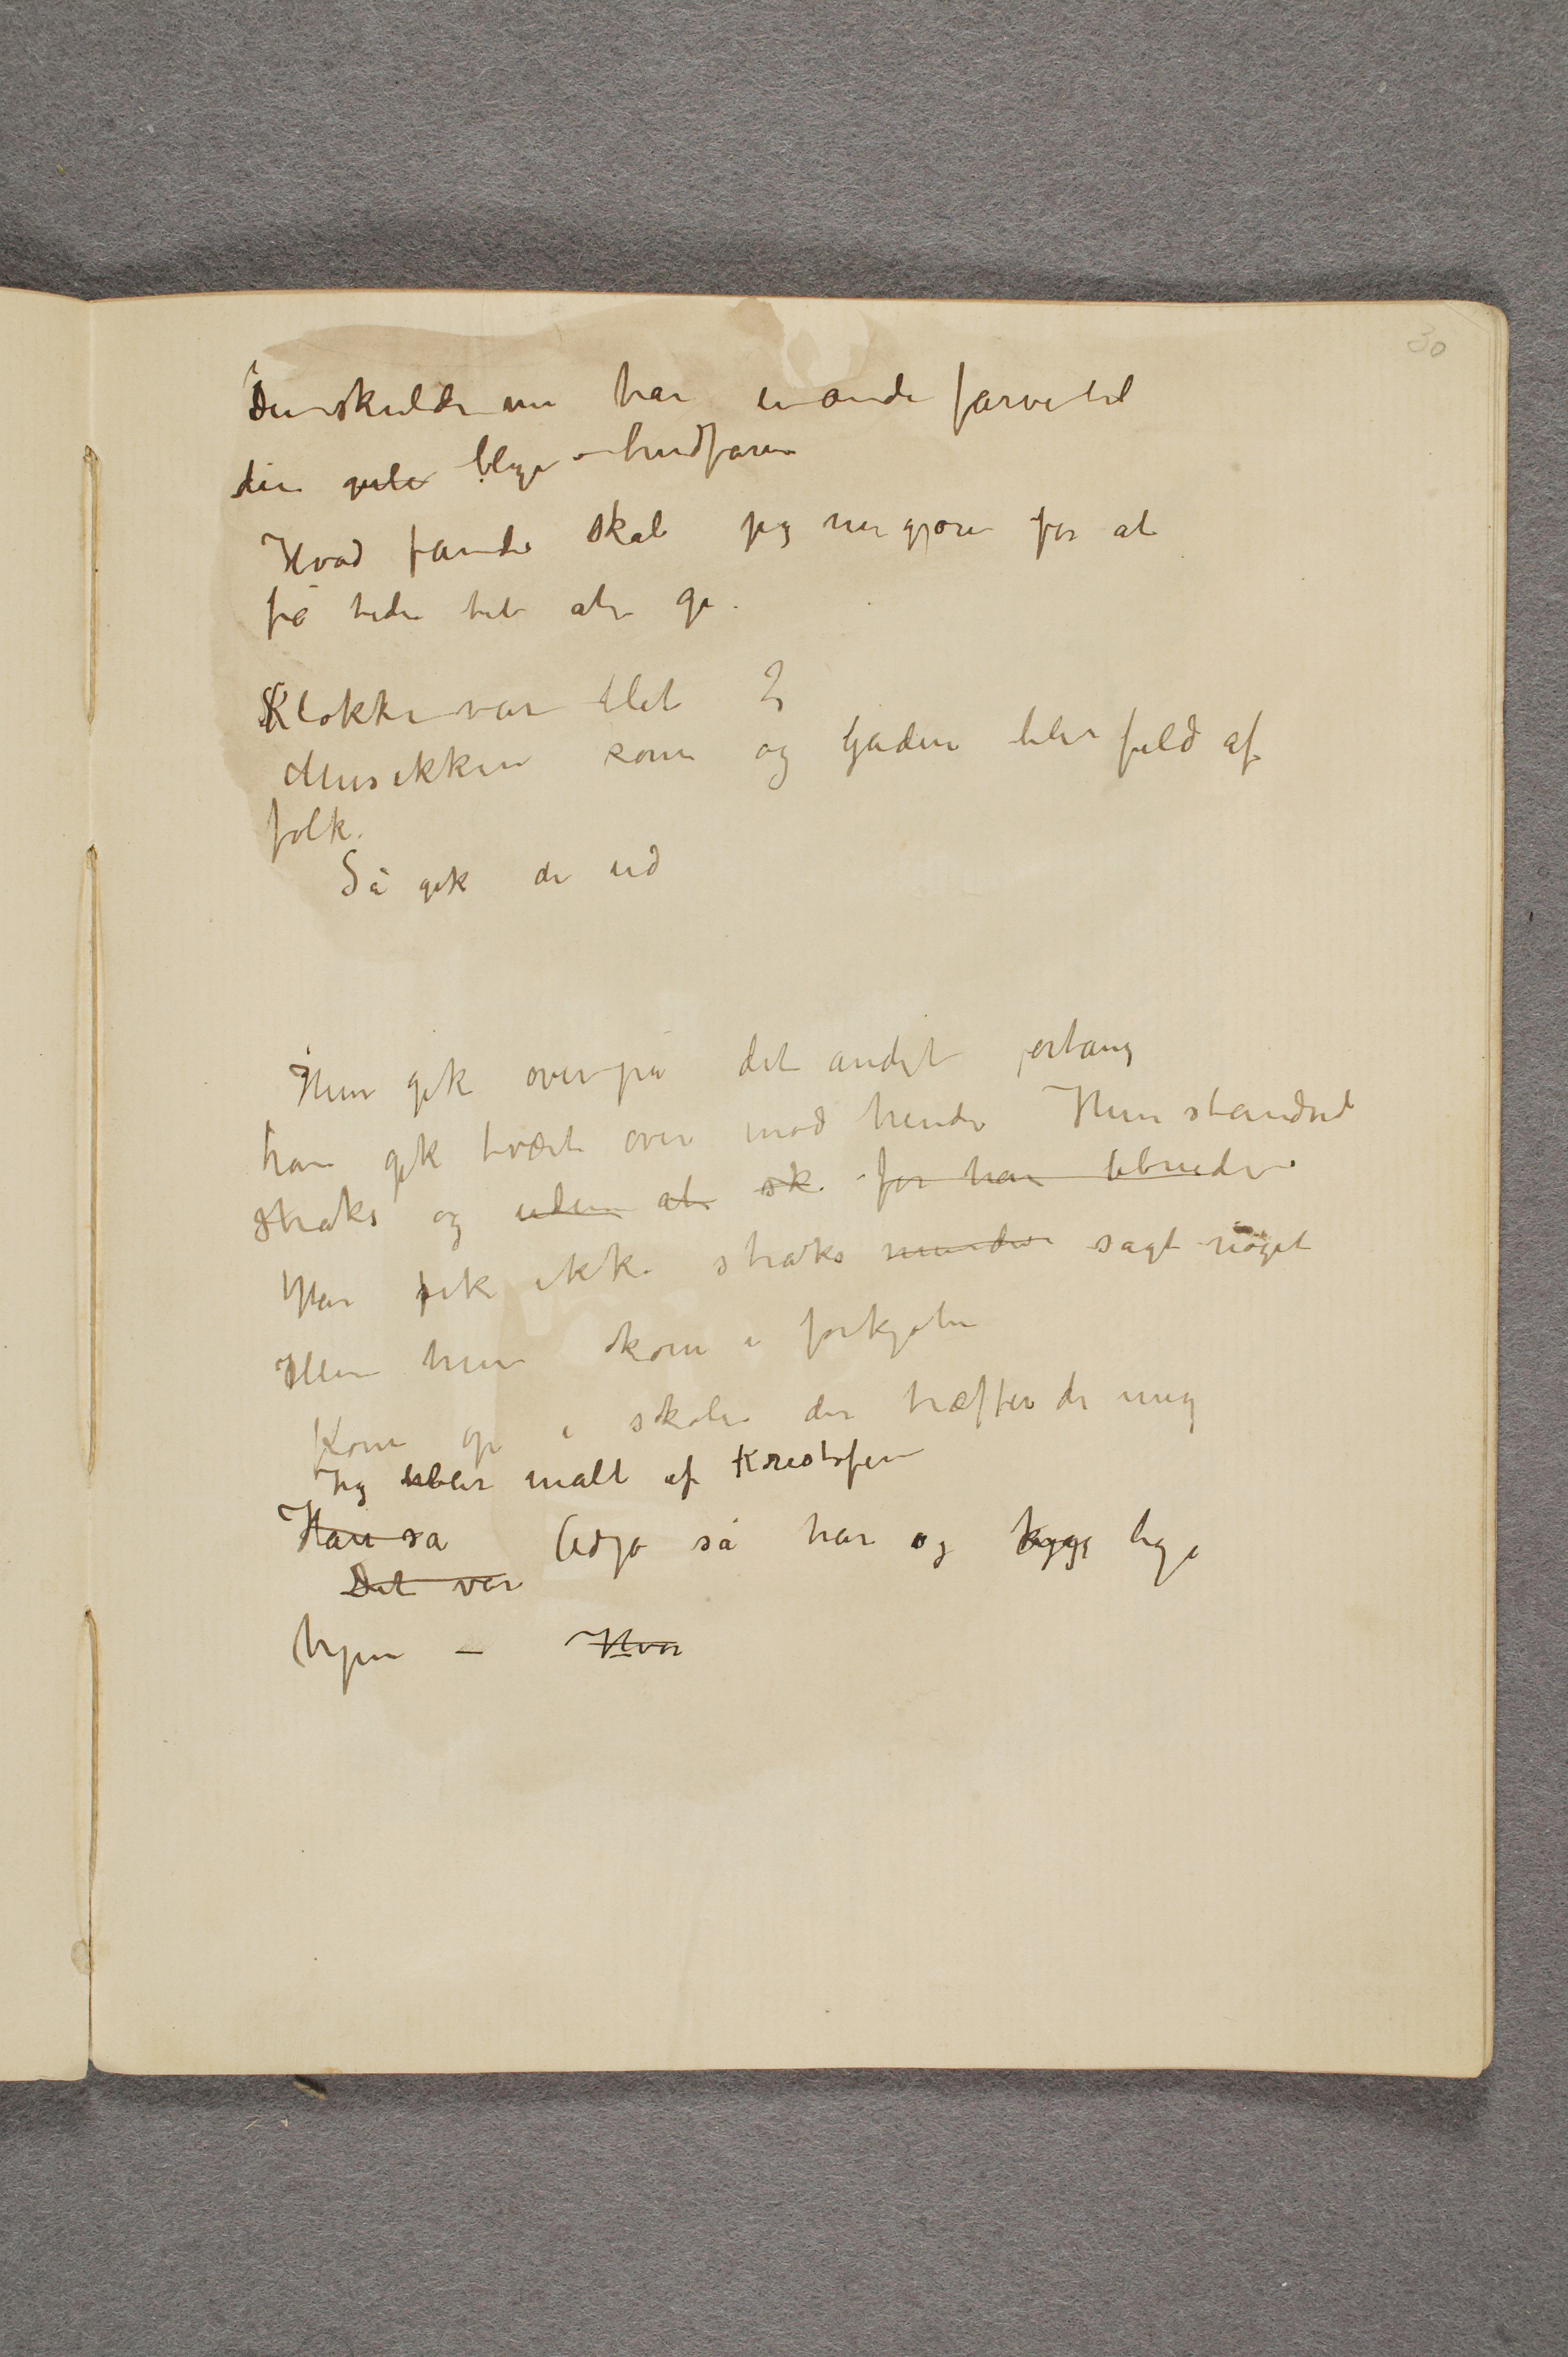 30
Du skulde nu har en anden farve til
din gule blege hudfarve
Hvad fanden skal jeg nu gjøre for at
få tiden til at gå.
Klokken var blet 2
Musikken kom og Gaden blev fuld af
folk.
Så gik de ud
Hun gik over på det andet fortaug
han gik tvært over mod hende Hun standset
straks og uden at sk for han
Han fik ikke straks mindre sagt noget
Men hun kom i forkjøbet
Kom op i skolen der træffer de mig
Jeg blir malt af Kristofer
Han sa Adjø så har og hyge lige
Det var
hjem – Hvor